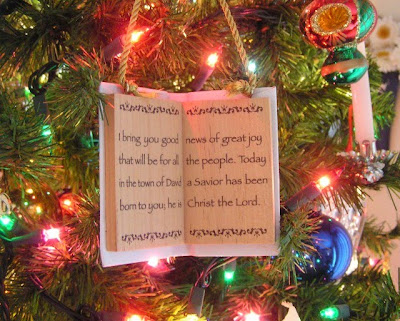 I bring you good news of great joy
that will be for all the people. Today
in the town of David a Savior has been
born to you; he is Christ the Lord.